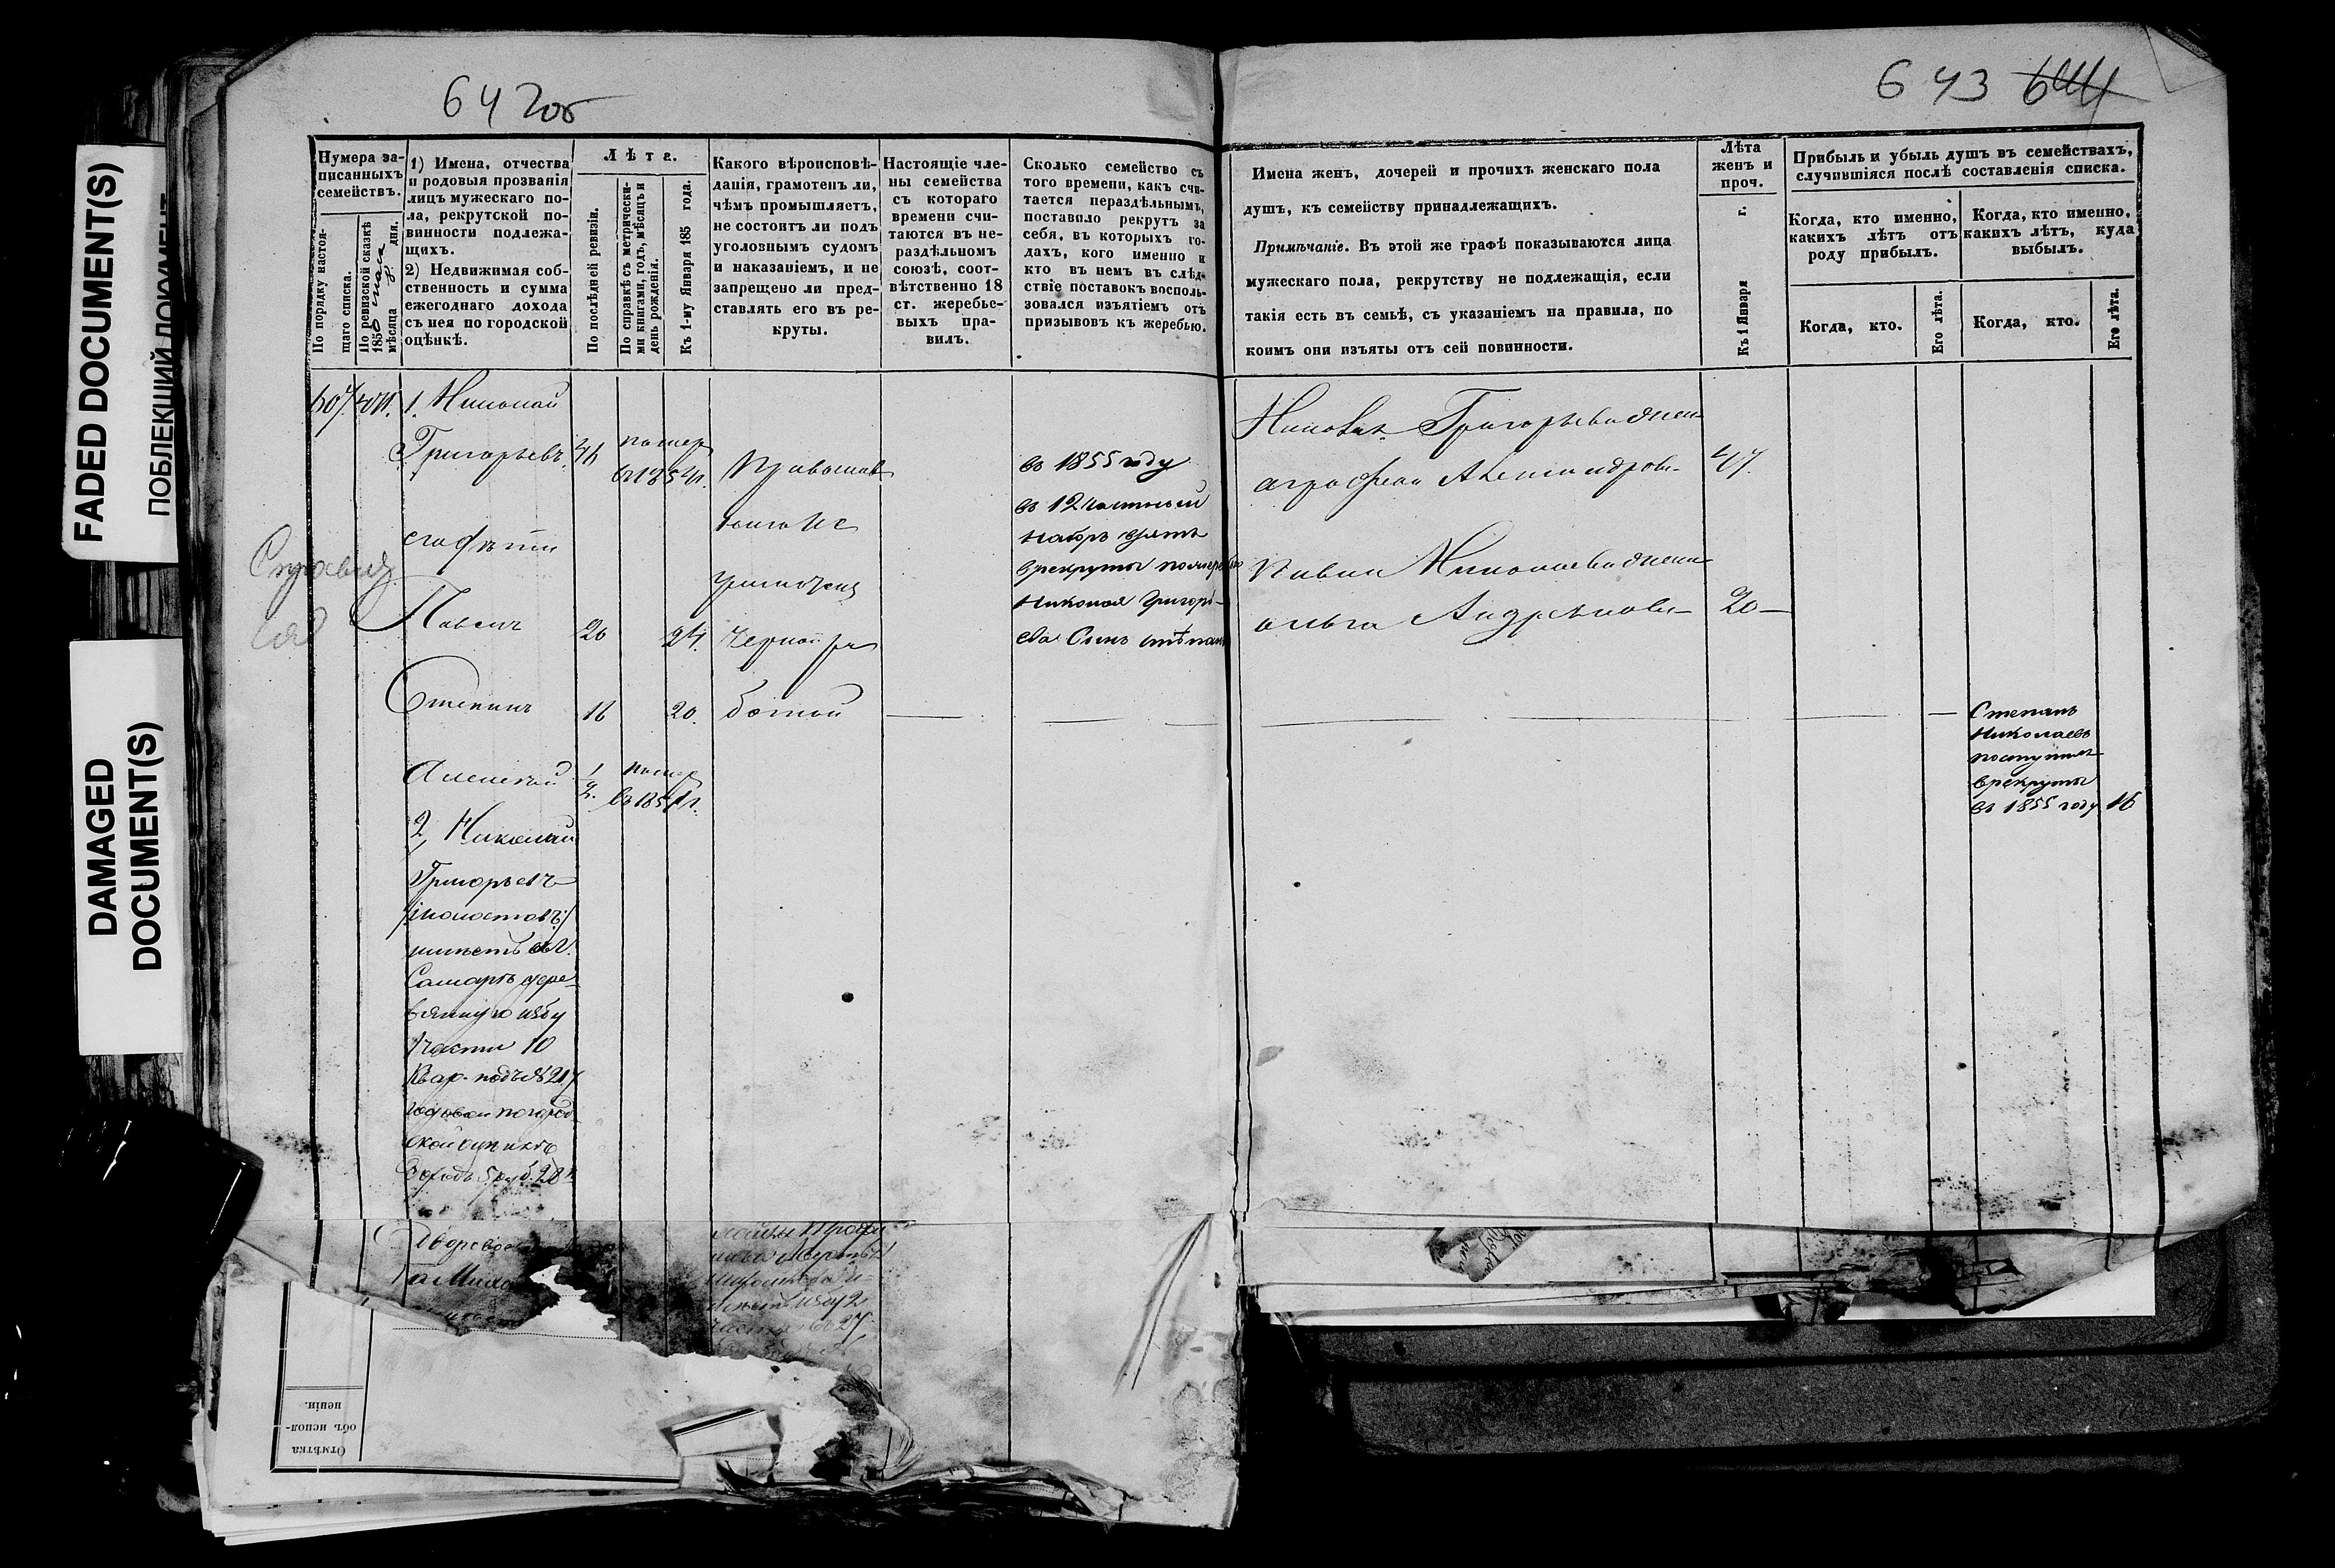 FADED DOCUMENT(S)
ПОБЛЕКШИЙ ДОКУМЕНТ
DAMAGED
DOCUMENT(S)
642об
643 644
Нумера за-
писанныхъ
семействъ.
По порядку настоя-
щаго списка.
По ревизской сказкѣ
1850
мѣсяца 8 дня.
1) Имена, отчества
и родовыя прозванія
лицъ мужескаго по-
ла, рекрутской по-
винности подлежа-
щихъ.
2) Недвижимая соб-
ственность и сумма
ежегоднаго дохода
съ нея по городской
оцѣнкѣ.
Лѣта.
По послѣдней ревизіи.
По справкѣ съ метрически-
ми книгами, годъ, мѣсяцъ и
день рожденія.
Къ 1-му Января 185 года.
Какого вѣроисповѣ-
данія, грамотенъ ли,
чѣмъ промышляетъ,
не состоитъ ли подъ
уголовнымъ судомъ
и наказаніемъ, и не
запрещено ли пред-
ставлять его въ ре-
круты.
Настоящіе чле-
ны семейства
съ котораго
времени счи-
таются въ не-
раздѣльномъ
союзѣ, соот-
вѣтственно 18
ст. жеребье-
выхъ пра-
вилъ.
Сколько семейство съ
того времени, какъ счи-
тается нераздѣльнымъ,
поставило рекрутъ за
себя, въ которыхъ го-
дахъ, кого именно и
кто въ немъ въ слѣд-
ствіе поставокъ восполь-
зовался изъятіемъ отъ
призывовъ къ жеребью.
Имена женъ, дочерей и прочихъ женскаго пола
душъ, къ семейству принадлежащихъ.
Примѣчаніе. Въ этой же графѣ показываются лица
мужескаго пола, рекрутству не подлежащія, если
такія есть въ семьѣ, съ указаніемъ на правила, по
коимъ они изъяты отъ сей повинности.
Лѣта
женъ и
проч.
Къ 1 Января г.
Прибыль и убыль душъ въ семействахъ,
случившіяся послѣ составленія списка.
Когда, кто именно,
какихъ лѣтъ отъ
роду прибылъ.
Когда, кто.
Его лѣта.
Когда, кто именно,
какихъ лѣтъ, куда
выбылъ.
Когда, кто.
Его лѣта.
607. 1. Николай
Григорьевъ 46 помер
в 1854 г.
Православ
наго Не
грамотенъ
Черной ра
ботой
въ 1855 году
въ 12 частный
наборъ взятъ
в рекруты
Николая Григорь-
ева Сынъ Степанъ
Николая Григорьева жена
Аграфена Александрова 47.
его дѣти
Павелъ 20 24.
Павла Николаева жена
Ольга Андрѣянова 20
Степанъ 16 20.
Степанъ
Николаевъ
поступилъ
в рекруты
въ 1855 году 16
Алексѣй 1/2. помер
въ 1851 г.
2, Николай
Григорьевъ
имѣетъ въ г.
Самарѣ дере-
вянную избу
части 10
Квар. подъ № 217
годовой по город-
ской оцѣнкѣ
Доходъ 5 руб. 20 к
Отмѣтка
объ испол-
неніи.